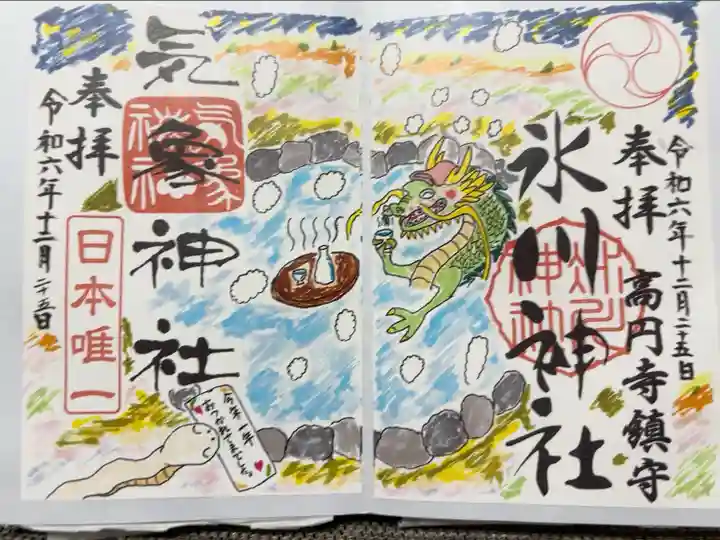 奉拝
令和六年十二月二十五日
高円寺鎮守
氷川神社
奉拝
令和六年十二月二十五日
気象神社
気象神社
日本唯一
今年一年
おつかれでました